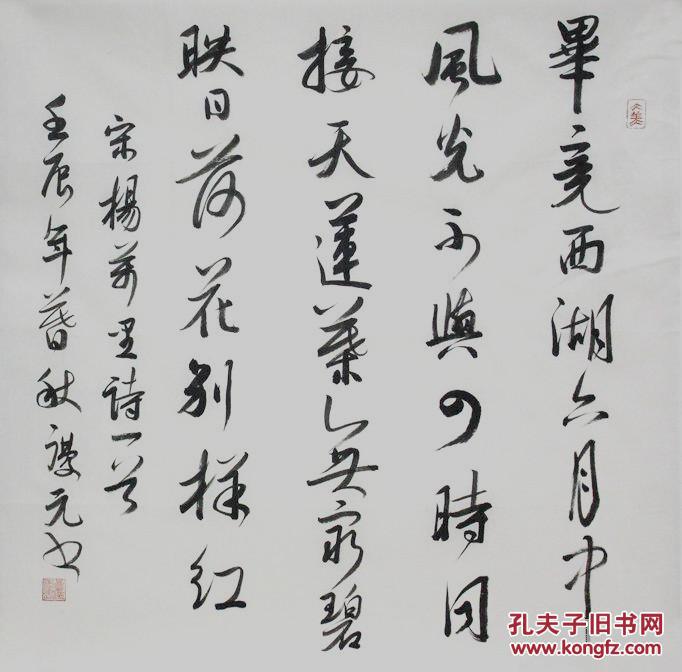 畢竟西湖六月中
風光不與四時同
接天蓮葉無窮碧
映日荷花別樣红
宋楊萬里詩一首
壬辰年暮秋元书
孔夫子旧书网
WWW.KONGFZ.COM